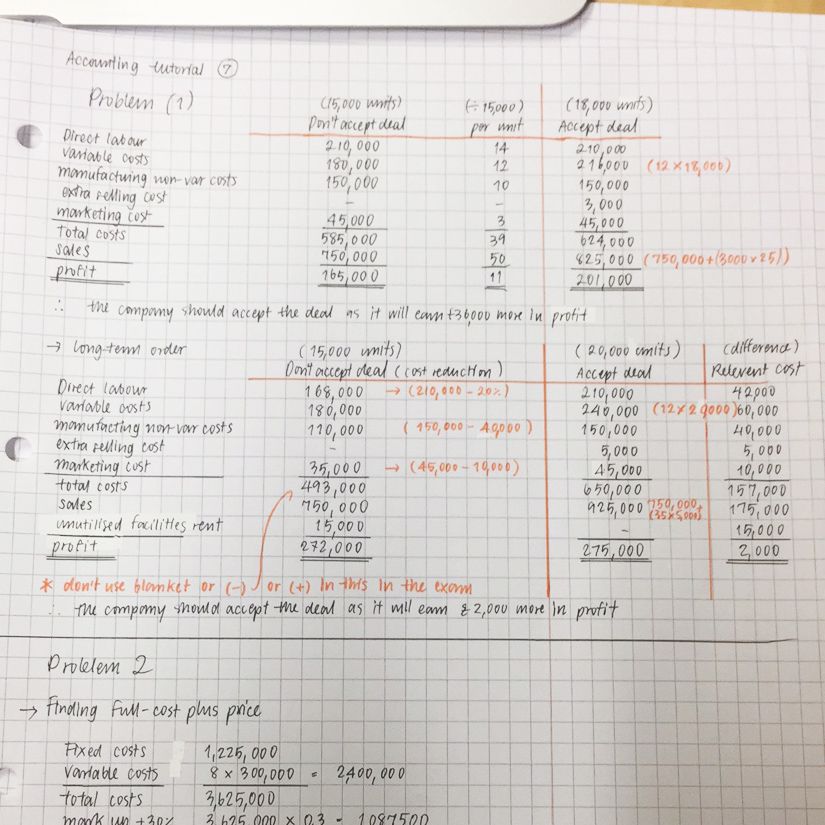 Accounting tutorial 7
Problem (1)
(15,000 units) (÷ 15000) (18,000 units)
Don't accept deal per unit Accept deal
Direct labour 210,000 14 210,000
variable costs 180,000 12 216,000 (12 × 18,000)
manufacturing non-var costs 150,000 10 150,000
extra selling cost – – 3,000
marketing cost 45,000 3 45,000
Total costs 585,000 39 624,000
sales 750,000 50 825,000 (750,000+(3000×25))
profit 165,000 11 201,000
∴ the company should accept the deal as it will earn £36000 more in profit
→ long-term order (15,000 units) (20,000 units) (difference)
Don't accept deal (cost reduction) Accept deal Relevent cost
Direct labour 168,000 → (210,000 – 20%) 210,000 42,000
Variable costs 180,000 240,000 (12×20,000) 60,000
manufacting non-var costs 110,000 (150,000 – 40,000) 150,000 40,000
extra selling cost – 5,000 5,000
marketing cost 35,000 → (45,000 – 10,000) 45,000 10,000
total costs 493,000 650,000 157,000
sales 750,000 925,000 750,000+ (35×5,000) 175,000
unutilised facilities rent 15,000 – 15,000
profit 272,000 275,000 2,000
* don't use blanket or (-) or (+) in this in the exam
∴ the company should accept the deal as it will earn £2,000 more in profit
Problem 2
→ finding full-cost plus price
Fixed costs 1,225,000
Variable costs 8 × 300,000 = 2,400,000
total costs 3,625,000
mark up +30% 3,625,000 × 0.3 = 1087500